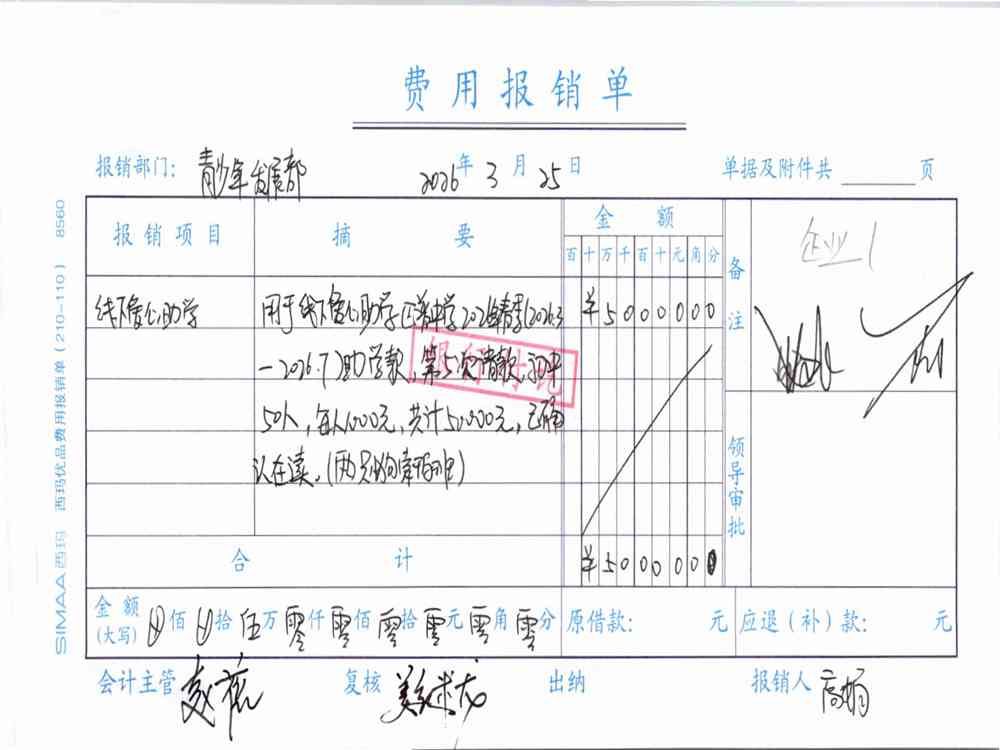 费用报销单
报销部门: 青少年发展部 2026年3月25日 单据及附件共 页
报销项目 摘要 金额 备注 企业1
百十万千百十元角分
线下爱心助学 用于线下爱心助学 中学2026年春季(2026.3 ¥5000000
-2026.7)助学款,第5次请款,初中
50人,每人1000元,共计50000元,已确
认在读。(两只
领导审批
合计 ¥5000000
金额(大写) 佰 拾伍万零仟零佰零拾零元零角零分 原借款: 元 应退(补)款: 元
会计主管 复核 出纳 报销人
SIMAA西玛 西玛优品费用报销单(210-110) 8560